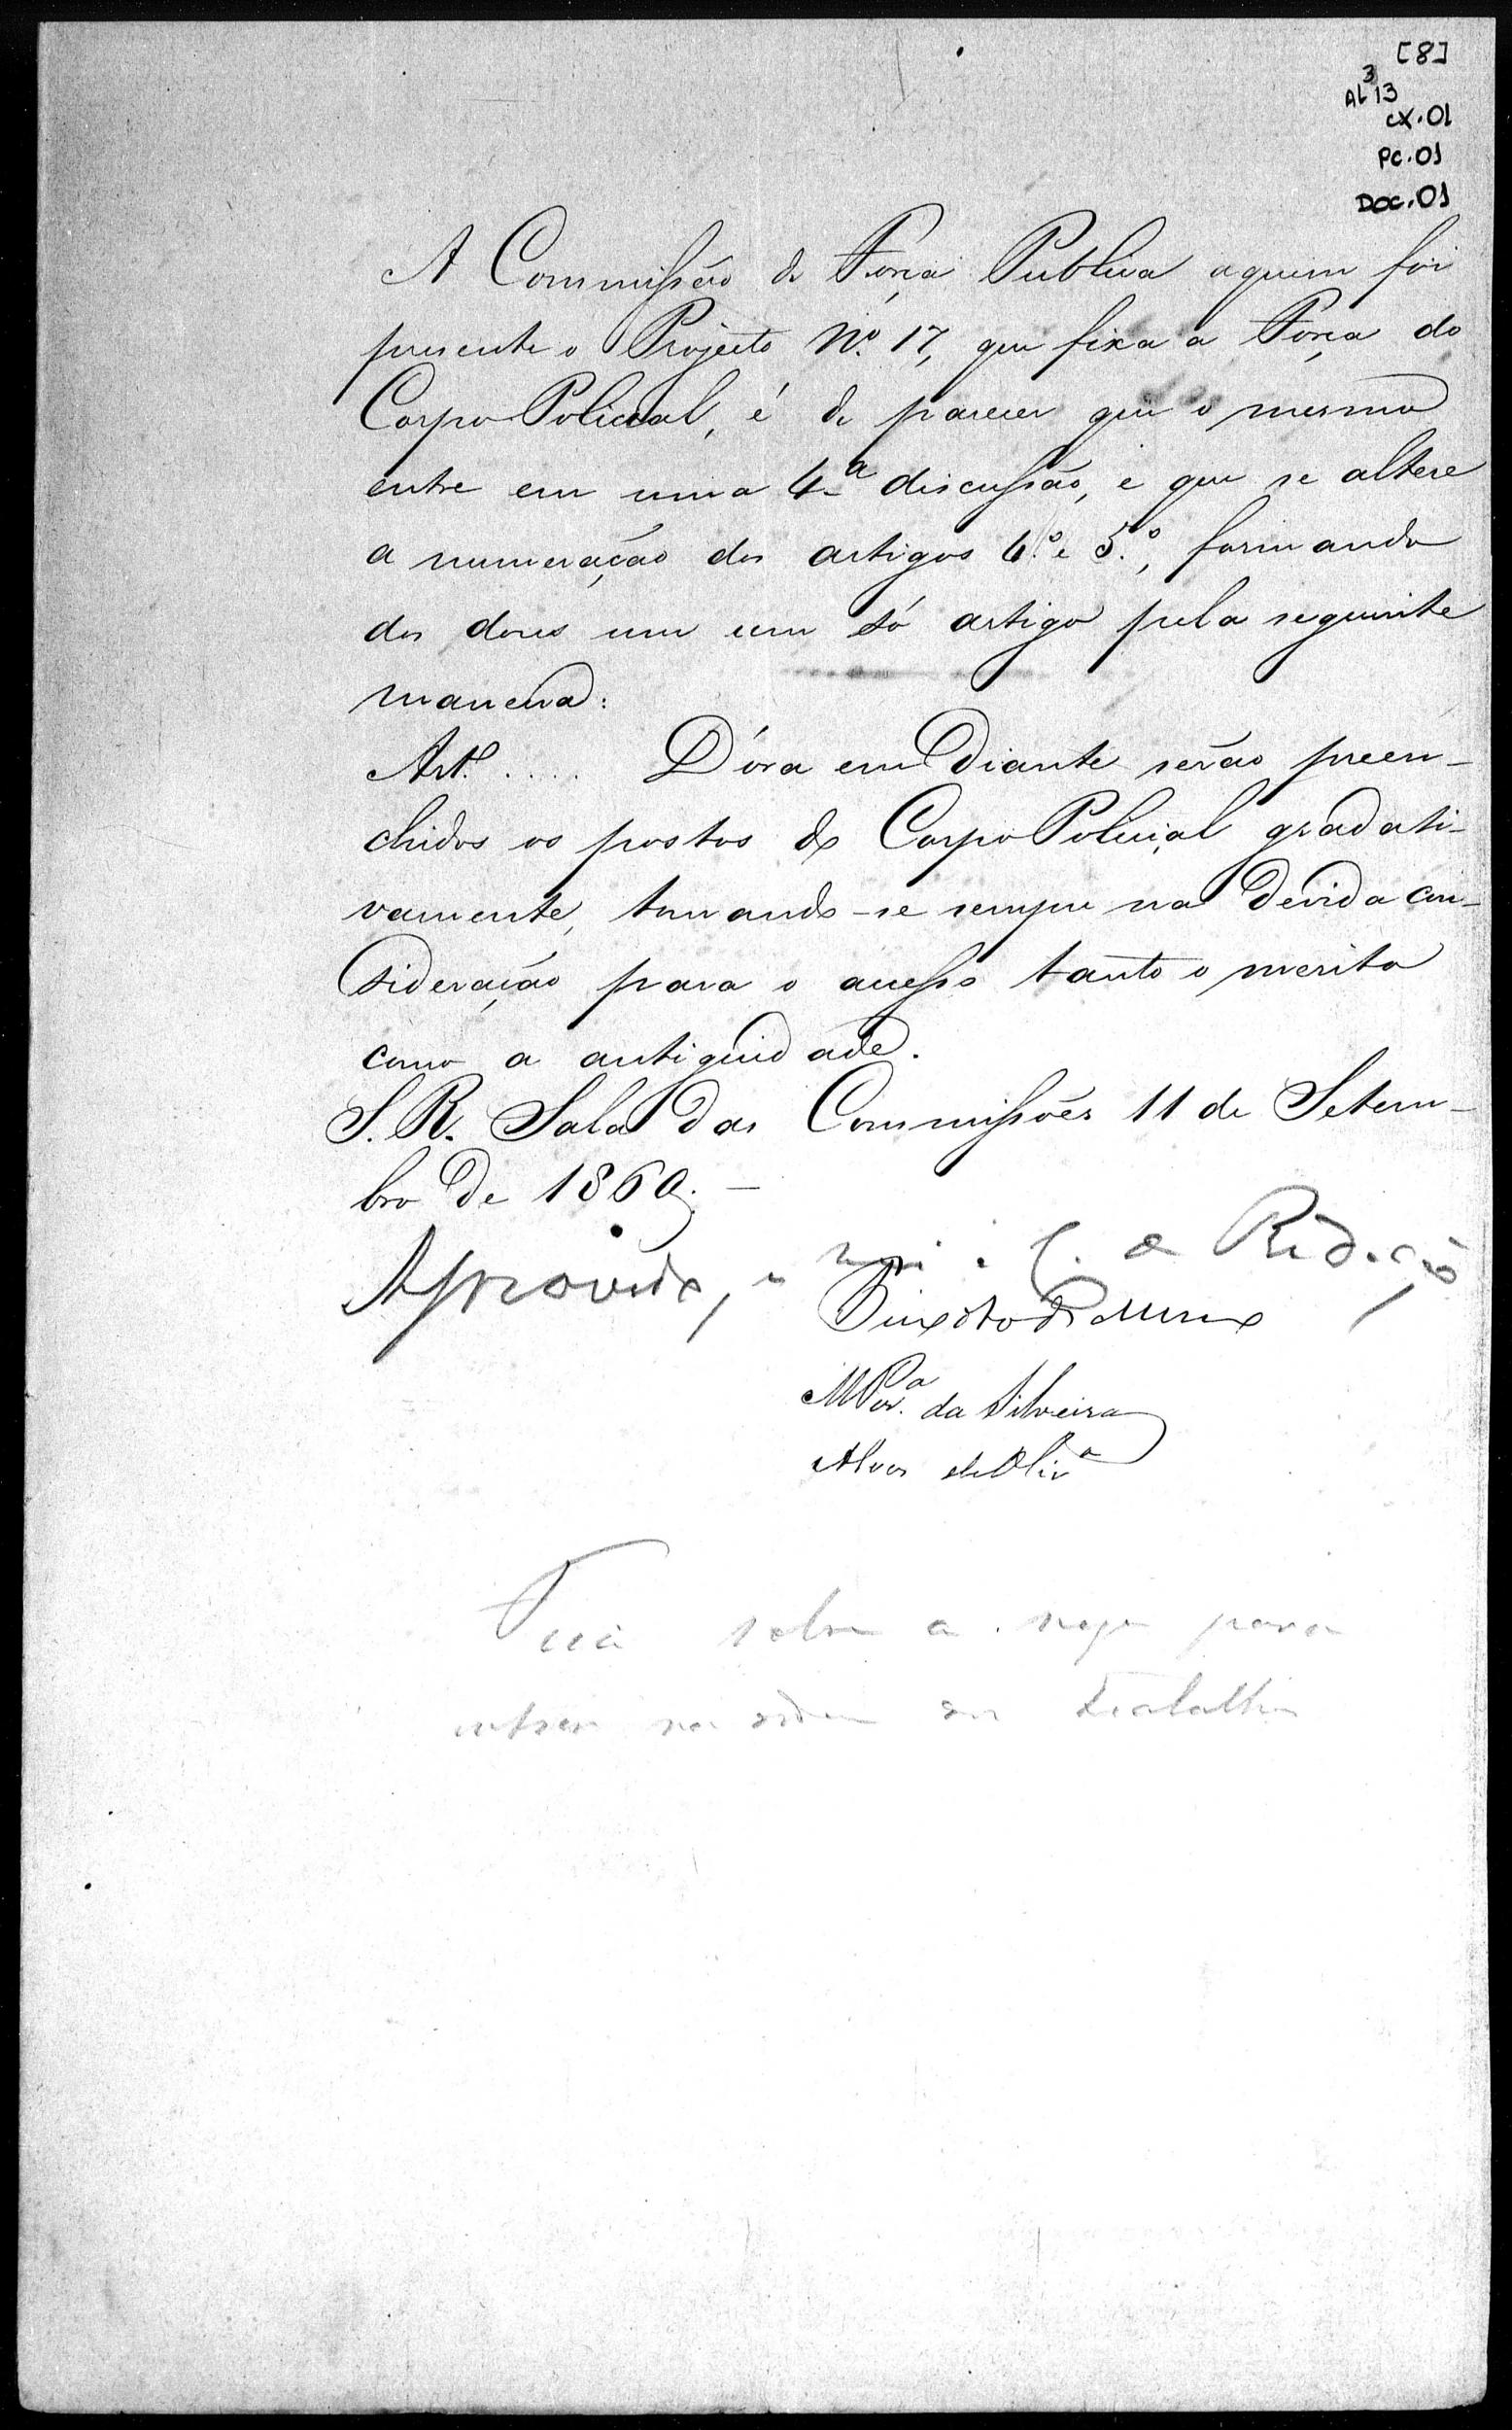 [8]
3
AL 13
CX.01
PC.01
DOC.01
A Commissão de Força Publica aquem foi
presente o Projecto Nº. 17, que fixa a Força do
Corpo Policial, é de parecer que o mesmo
entre em uma 4ª discussão, e que se altere
a numeração dos artigos 4.º e 5.º, formando
dos dous um um só artigo pela seguinte
maneira:
Artº. .... D'óra em diante serão preen-
chidos os postos do Corpo Policial gradati-
vamente, tomando-se sempre na devida con-
sideração para o accesso tanto o merito
como a antiguidade.
S. R. Sala das Commissões 11 de Setem-
bro de 1860. —
Aprovado, e C. de Redação
M Perª. da Silveira
Alves de Olivª
Fica sobre a mesa para
entrar na ordem dos trabalhos